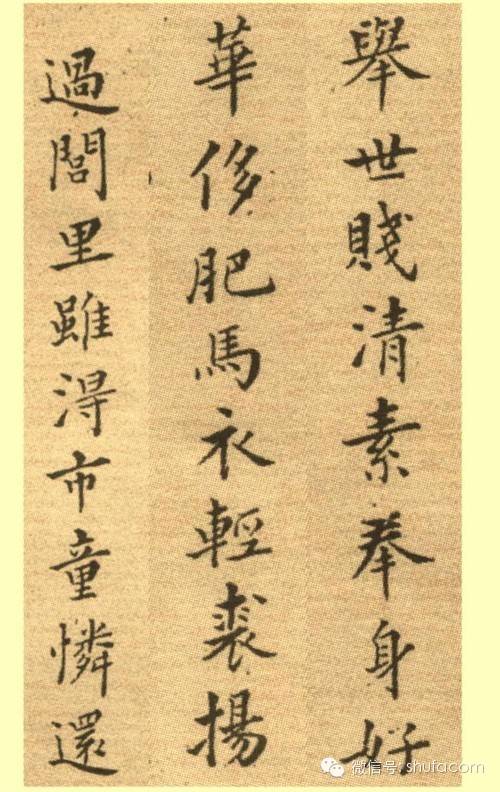 舉世賤清素奉身好
華侈肥馬衣輕裘揚
過閭里雖得市童憐還
微信号: shufacom